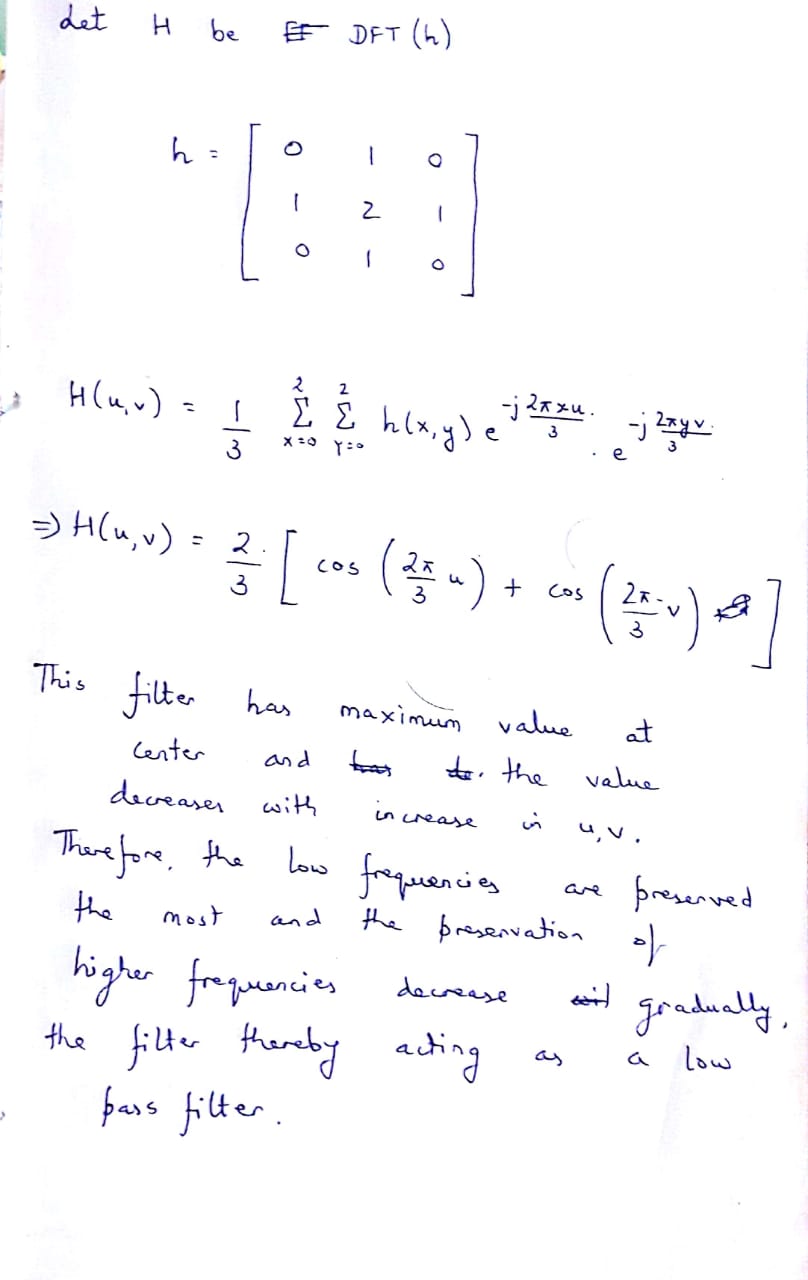 Let H be DFT (h)
h = [ 0 1 0
1 2 1
0 1 0 ]
H(u,v) = 1/3 Σ_{x=0}^{2} Σ_{y=0}^{2} h(x,y) e^{-j 2πxu/3} . e^{-j 2πyv/3}
⇒ H(u,v) = 2/3 [ cos (2π/3 u) + cos (2π/3 v) ]
This filter has maximum value at
center and the value
decreases with increase in u,v.
Therefore, the low frequencies are preserved
the most and the preservation of
higher frequencies decrease gradually,
the filter thereby acting as a low
pass filter.